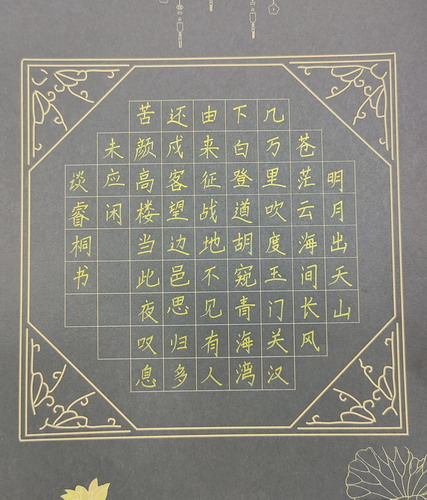 明月出天山
苍茫云海间长风
几万里吹度玉门关汉
下白登道胡窥青海湾
由来征战地不见有人
还戍客望边邑思归多
苦颜高楼当此夜叹息
未应闲
谈睿桐书